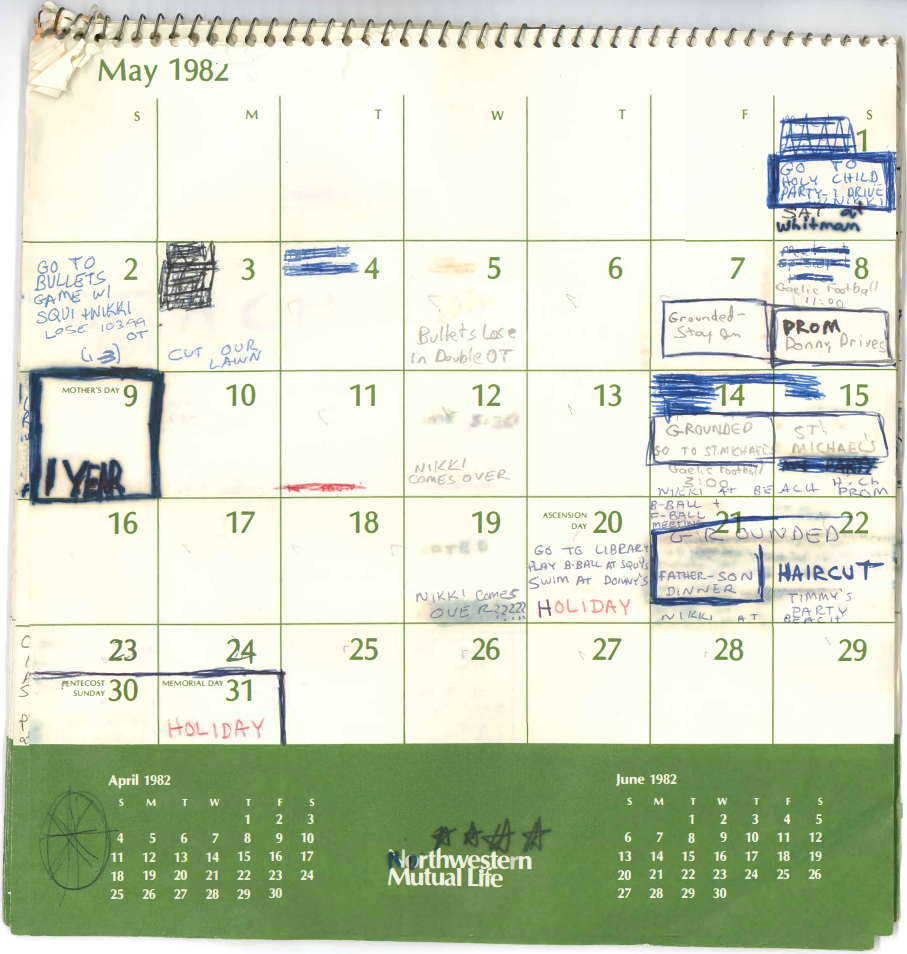 May 1982
S M T W T F S
1
GO TO
HOLY CHILD
PARTY- I DRIVE
NIKKI
SAT at
Whitman
2
GO TO
BULLETS
GAME W/
SQUI + NIKKI
LOSE 103 99
OT
3
CUT OUR
LAWN
4
5
Bullets Lose
in Double OT
6
7
Grounded-
Stay In
8
Gaelic Football
11:00
PROM
Donny Drives
MOTHER'S DAY 9
1 YEAR
10
11
12
5:30
NIKKI
COMES OVER
13
14
GROUNDED
GO TO ST. MICHAEL'S
Gaelic Football
3:00
NIKKI AT BEACH
15
ST.
MICHAEL'S
H. Ch
PROM
16
17
18
19
NIKKI COMES
OVER?????
ASCENSION
DAY 20
GO TO LIBRARY
PLAY B-BALL AT SQUI'S
SWIM AT DONNY'S
HOLIDAY
B-BALL +
F-BALL
MEETING
21 22
GROUNDED
FATHER-SON
DINNER
NIKKI AT
HAIRCUT
TIMMY'S
PARTY
BEACH
23
24
25
26
27
28
29
PENTECOST
SUNDAY 30
MEMORIAL DAY 31
HOLIDAY
April 1982
S M T W T F S
1 2 3
4 5 6 7 8 9 10
11 12 13 14 15 16 17
18 19 20 21 22 23 24
25 26 27 28 29 30
Northwestern
Mutual Life
June 1982
S M T W T F S
1 2 3 4 5
6 7 8 9 10 11 12
13 14 15 16 17 18 19
20 21 22 23 24 25 26
27 28 29 30